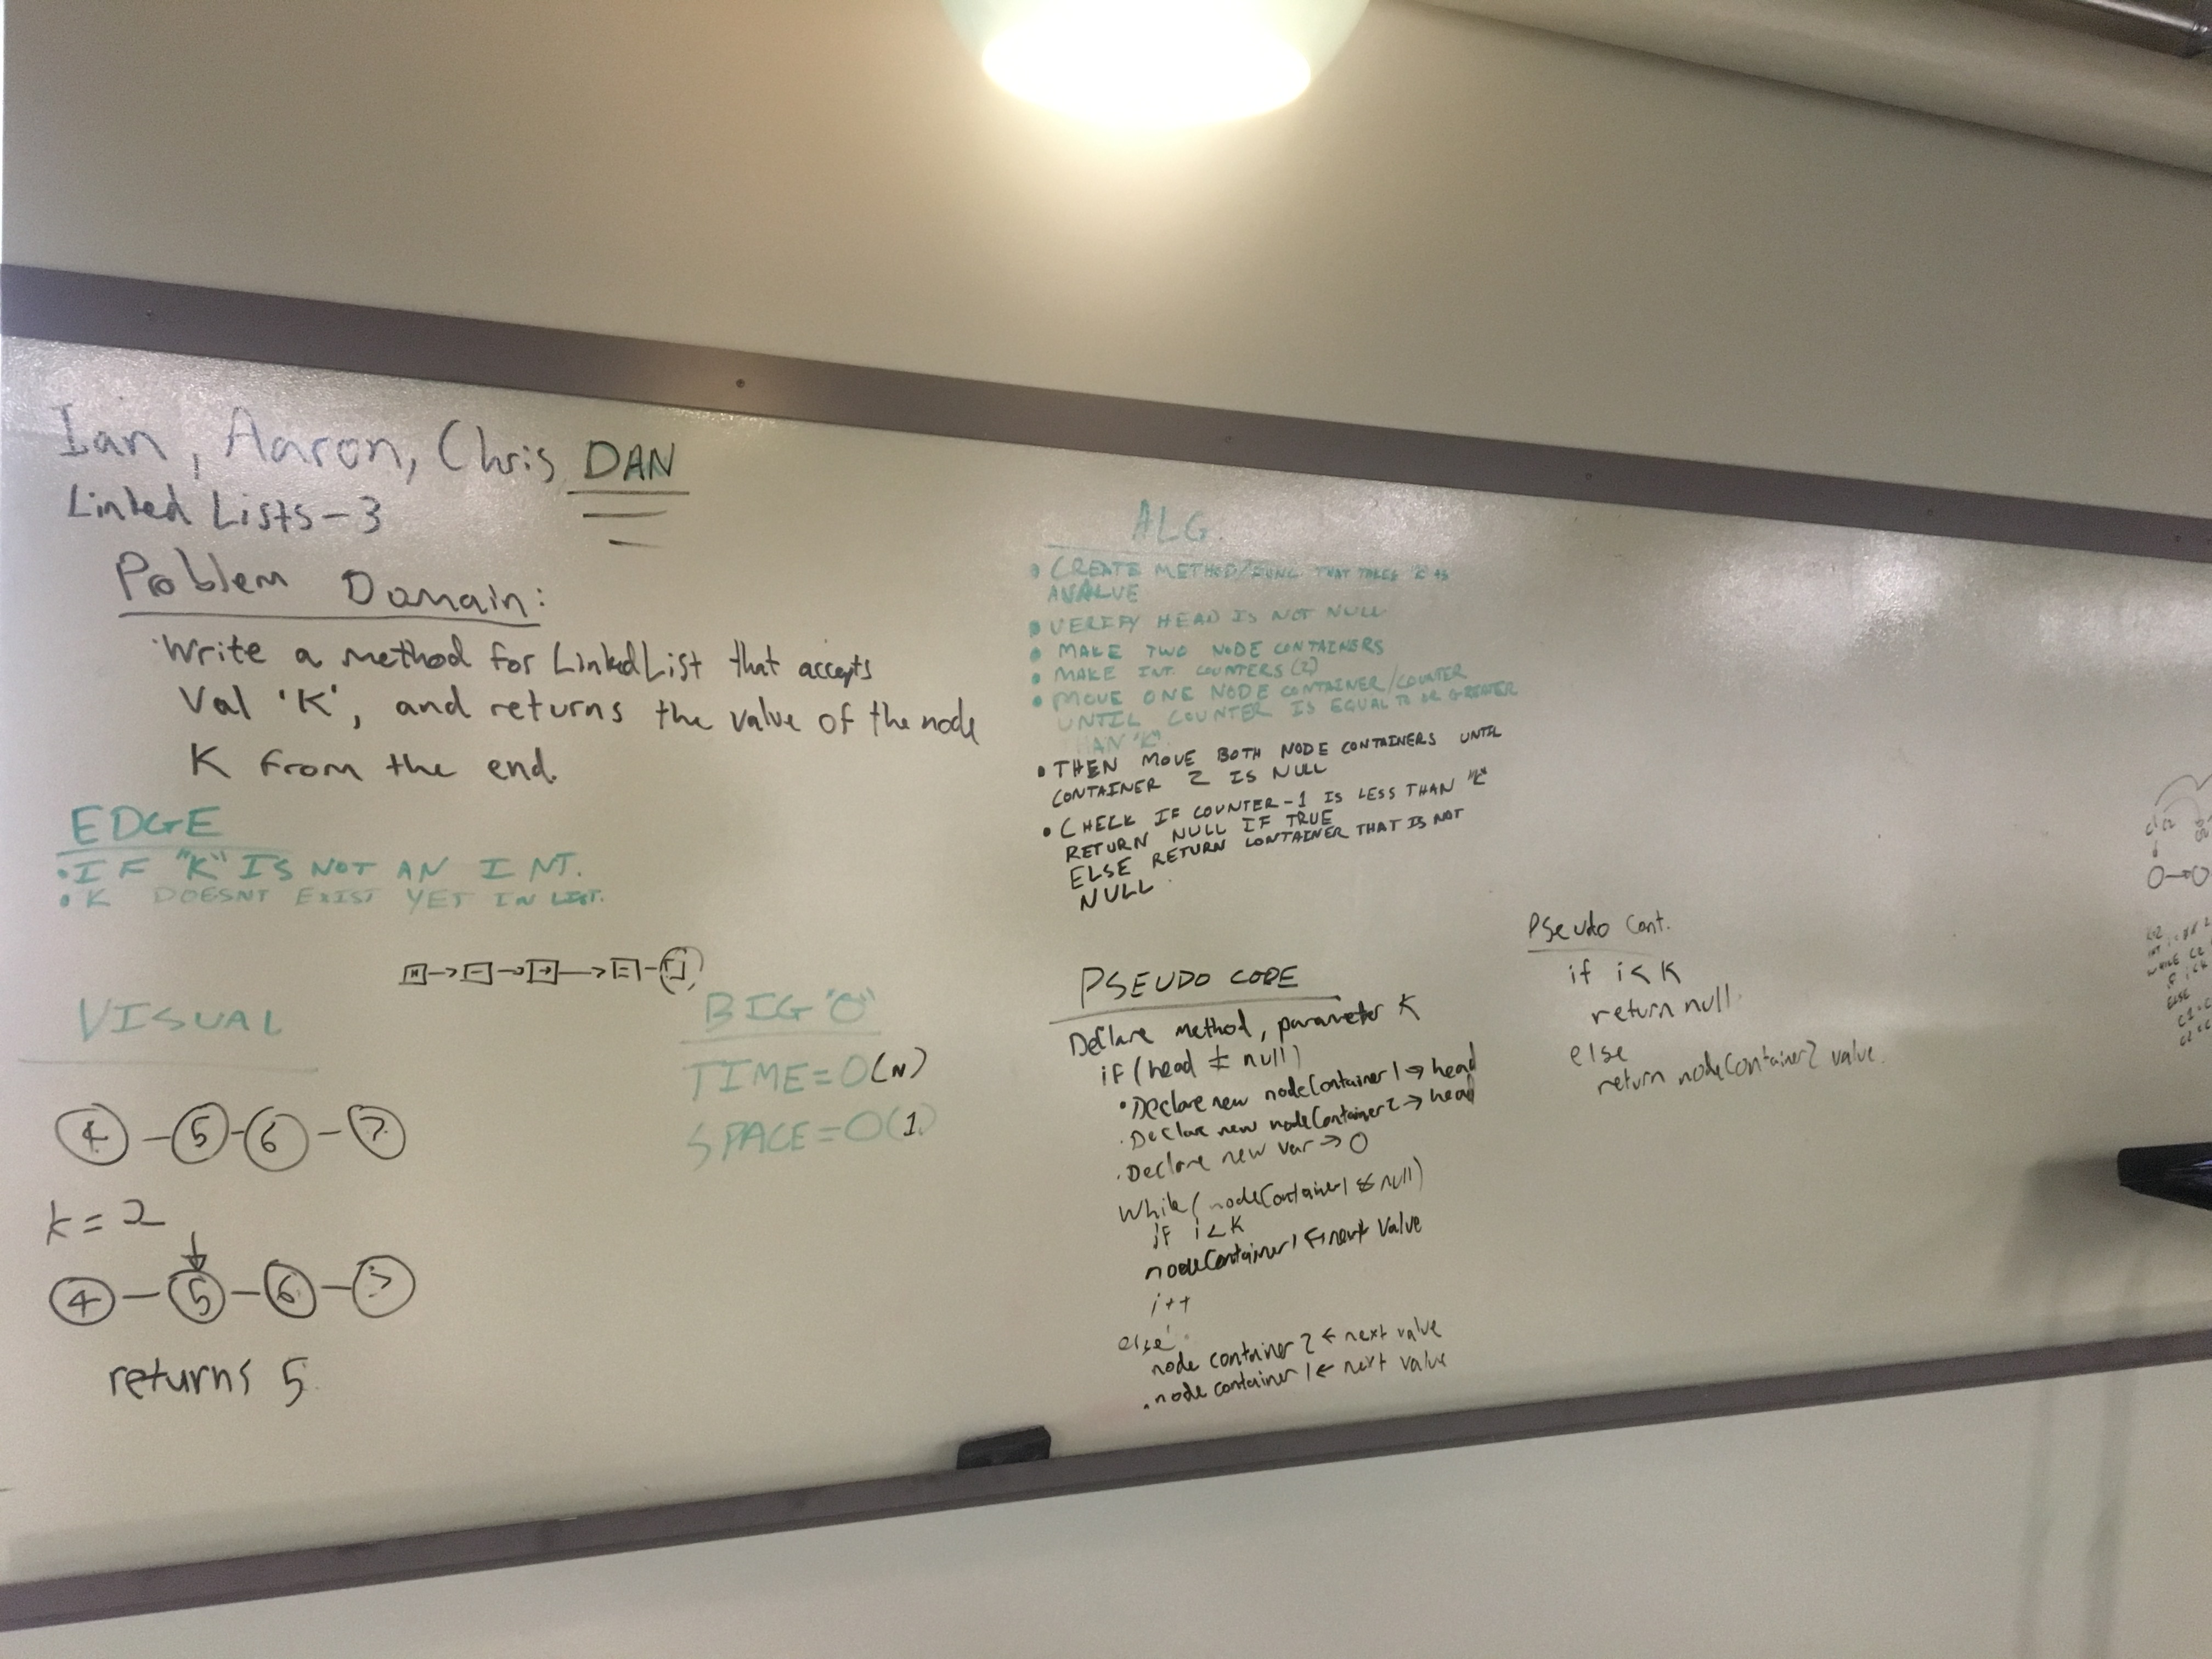 Ian, Aaron, Chris DAN
Linked Lists-3
Problem Domain:
Write a method for LinkedList that accepts
Val 'K', and returns the value of the node
K from the end.
EDGE
• IF "K" IS NOT AN INT.
• K DOESNT EXIST YET IN LIST.
VISUAL
4 - 5 - 6 - 7
k = 2
4 - 5 - 6 - 7
returns 5
BIG "O"
TIME = O(N)
SPACE = O(1)
ALG.
• CREATE METHOD/FUNC. THAT TAKES "K" AS
A VALUE
• VERIFY HEAD IS NOT NULL
• MAKE TWO NODE CONTAINERS
• MAKE INT. COUNTERS (2)
• MOVE ONE NODE CONTAINER/COUNTER
UNTIL COUNTER IS EQUAL TO OR GREATER
THAN "K".
• THEN MOVE BOTH NODE CONTAINERS UNTIL
CONTAINER 2 IS NULL
• CHECK IF COUNTER-1 IS LESS THAN "K"
RETURN NULL IF TRUE
ELSE RETURN CONTAINER THAT IS NOT
NULL
PSEUDO CODE
Declare method, parameter K
if (head ≠ null)
• Declare new nodeContainer1 → head
• Declare new nodeContainer2 → head
• Declare new var → 0
While (nodeContainer1 null)
if i < K
nodeContainer1 ← next value
i++
else
node container 2 ← next value
• node container 1 ← next value
Pseudo Cont.
if i < K
return null
else
return nodeContainer2 value.
ELSE